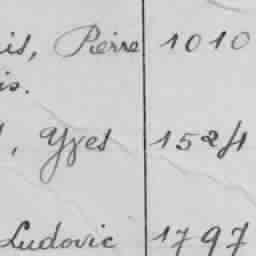 is, Pierre 1010
is.
, Yves 1524
Ludovic 1797